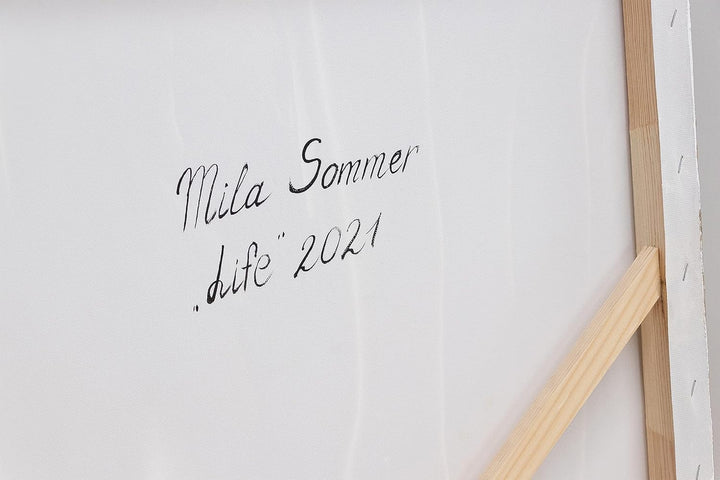 Mila Sommer
„Life" 2021